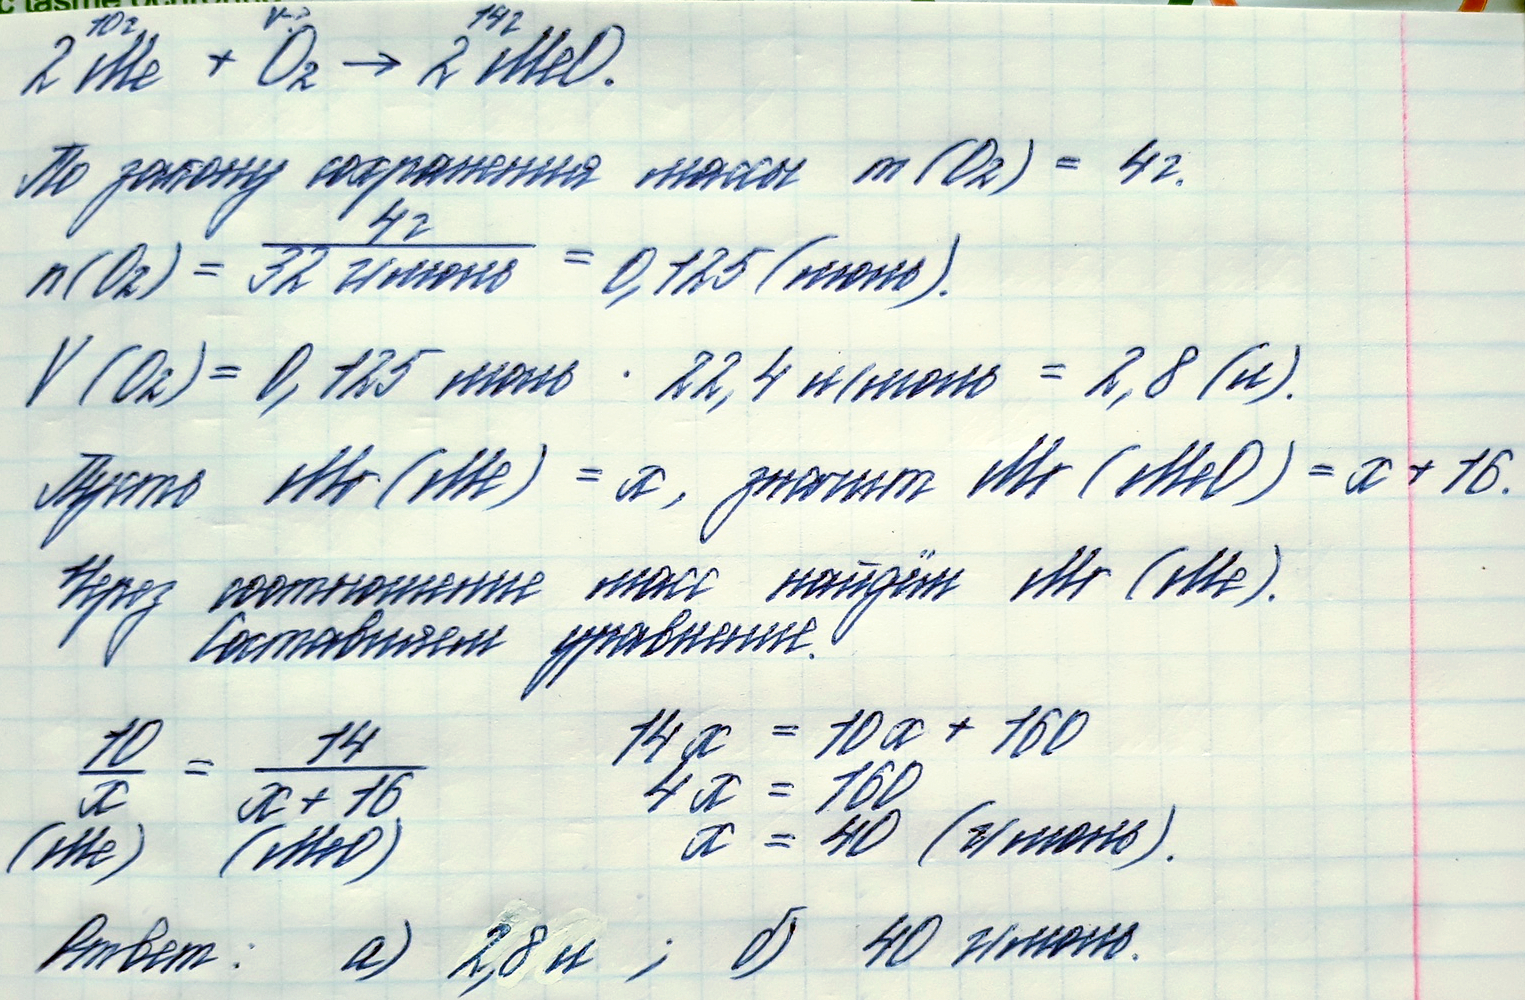 10г V-? 14г
2Me + O₂ → 2MeO.
По закону сохранения массы m(O₂) = 4г.
n(O₂) = 4г / 32 г/моль = 0,125 (моль).
V(O₂) = 0,125 моль · 22,4 л/моль = 2,8 (л).
Пусть Mr(Me) = x, значит Mr(MeO) = x + 16.
Через соотношение масс найдём Mr(Me).
Составляем уравнение.
10/x = 14/(x + 16)
(Me) (MeO)
14x = 10x + 160
4x = 160
x = 40 (г/моль).
Ответ: а) 2,8 л ; б) 40 г/моль.